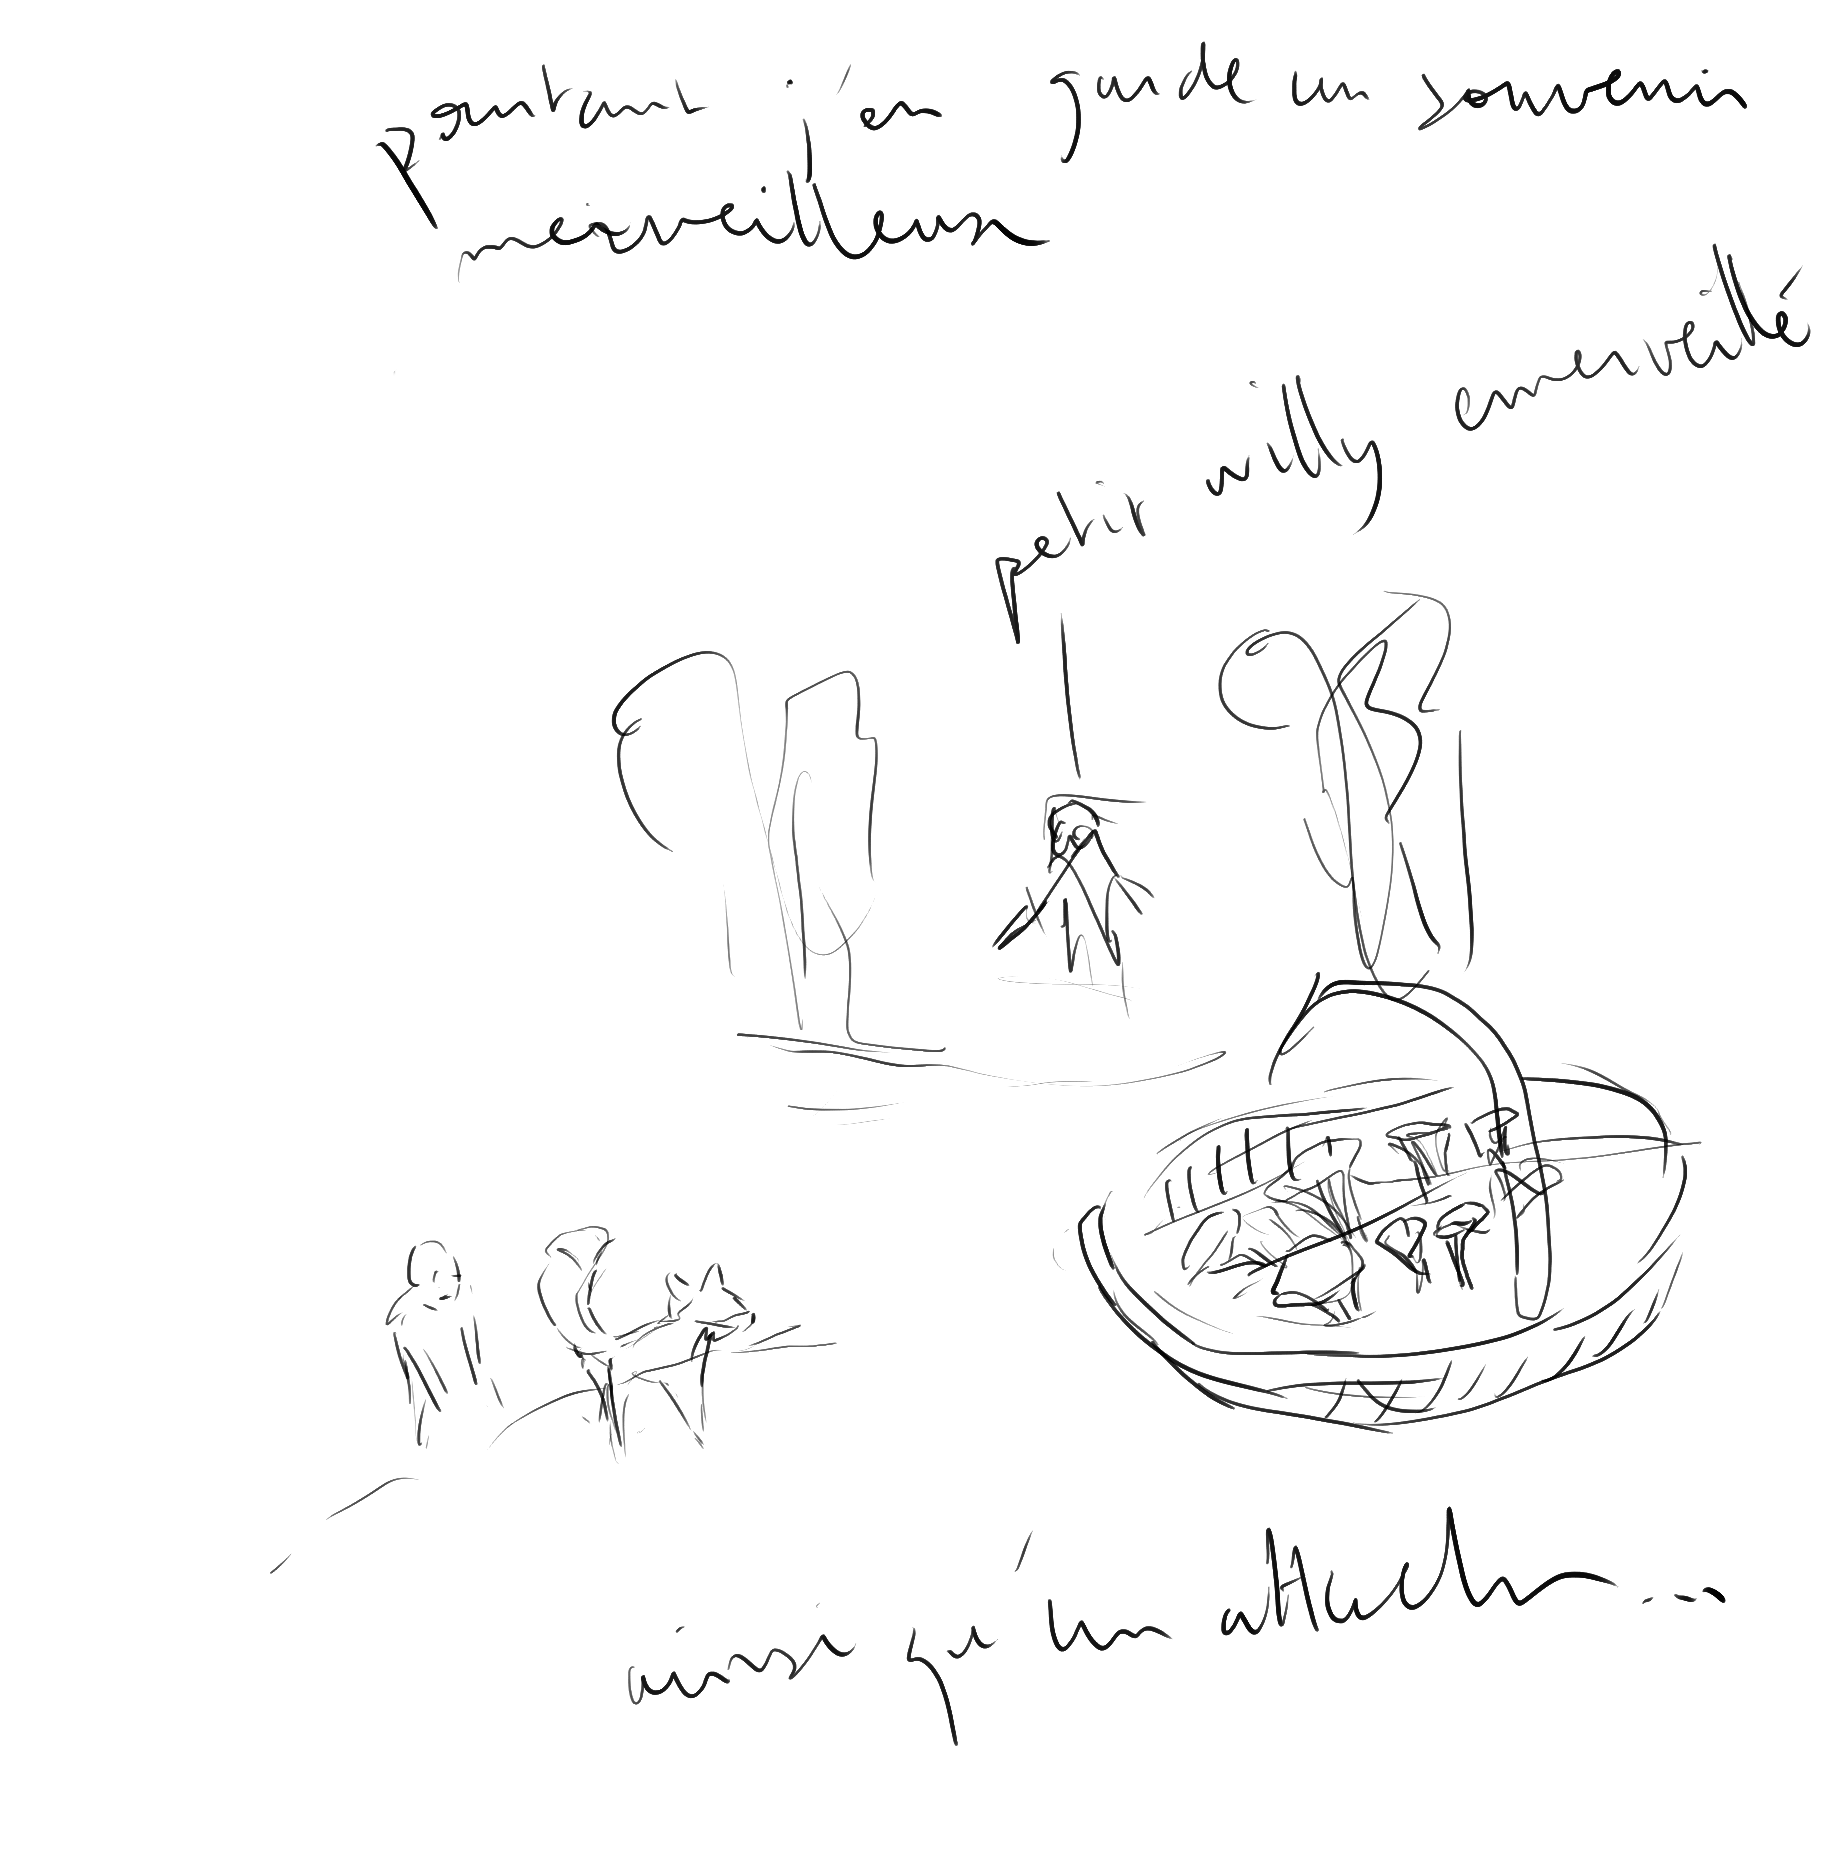 pourtant j'en garde un souvenir
merveilleux
petit willy émerveillé
ainsi qu'un